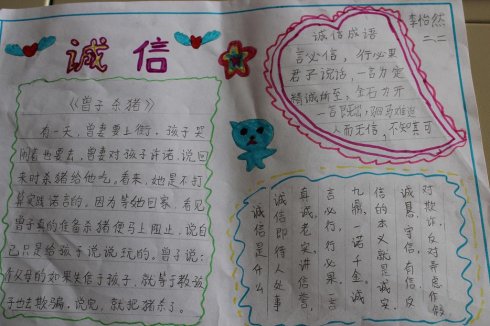 诚信
《曾子杀猪》
有一天，曾妻要上街，孩子哭
闹着也要去，曾妻对孩子许诺，说回
来时杀猪给他吃。看来，她是不打
算实践诺言的，因为等他回家，看见
曾子真的准备杀猪便马上阻止，说自
己只是给孩子说说玩的。曾子说：
作父母的如果失信于孩子，就等于教孩
子也去欺骗，说完，就把猪杀了。
李怡然
二、二
诚信成语
言必信，行必果
君子说话，一言为定
精诚所至，金石为开
一言既出，驷马难追
人而无信，不知其可
诚信是什么
诚信即待人处事
真诚老实讲信誉，
言必行，行必果，一言
九鼎，一诺千金。诚
信的本义就是诚实、
诚恳、守信、有信，反
对欺诈、反对弄虚作假